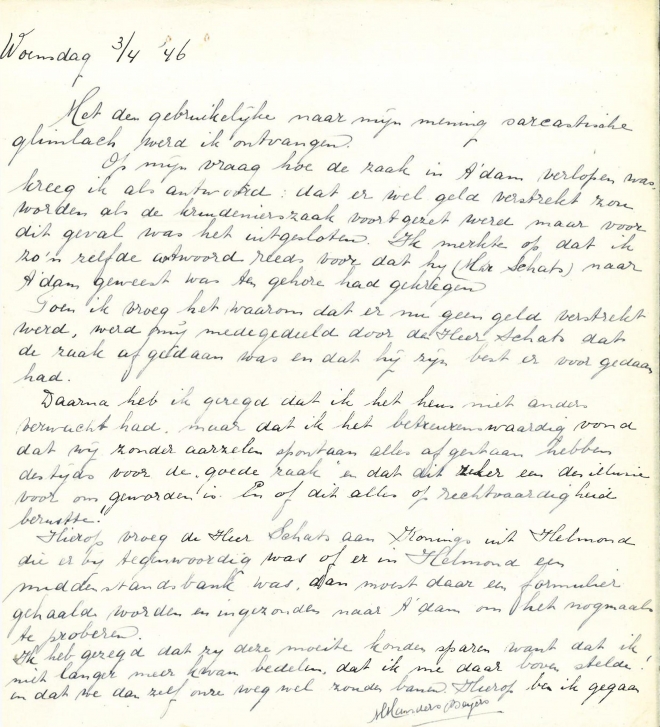 Woensdag 3/4 '46
Met den gebruikelijke naar mijn mening sarcastische
glimlach werd ik ontvangen.
Op mijn vraag hoe de zaak in A'dam verlopen was,
kreeg ik als antwoord: dat er wel geld verstrekt zou
worden als de kruidenierszaak voortgezet werd maar voor
dit geval was het uitgesloten. Ik merkte op dat ik
zo'n zelfde antwoord reeds voor dat hij (Hr Schats) naar
A'dam geweest was ten gehore had gekregen
Toen ik vroeg het waarom dat er nu geen geld verstrekt
werd, werd mij medegedeeld door de Heer Schats dat
de zaak afgedaan was en dat hij zijn best er voor gedaan
had.
Daarna heb ik gezegd dat ik het heus niet anders
verwacht had, maar dat ik het betreurenswaardig vond
dat wij zonder aarzelen spontaan alles afgestaan hebben
destijds voor de "goede zaak" en dat dit zeker een desillusie
voor ons geworden is. En of dit alles op rechtvaardigheid
berustte!
Hierop vroeg de Heer Schats aan Konings uit Helmond
die er bij tegenwoordig was of er in Helmond een
middenstandsbank was, dan moest daar een formulier
gehaald worden en ingezonden naar A'dam om het nogmaals
te proberen.
Ik heb gezegd dat zij deze moeite konden sparen want dat ik
niet langer meer kwam bedelen, dat ik me daar boven stelde!
en dat we dan zelf onze weg wel zonder banen. Hierop ben ik gegaan